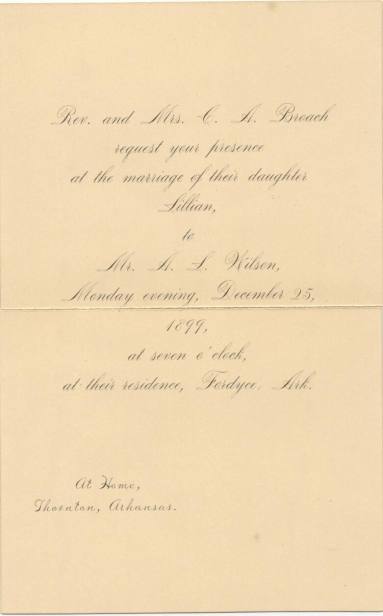 Rev. and Mrs. C. A. Broach
request your presence
at the marriage of their daughter
Lillian,
to
Mr. A. L. Wilson,
Monday evening, December 25,
1899,
at seven o'clock,
at their residence, Fordyce, Ark.
At Home,
Thornton, Arkansas.